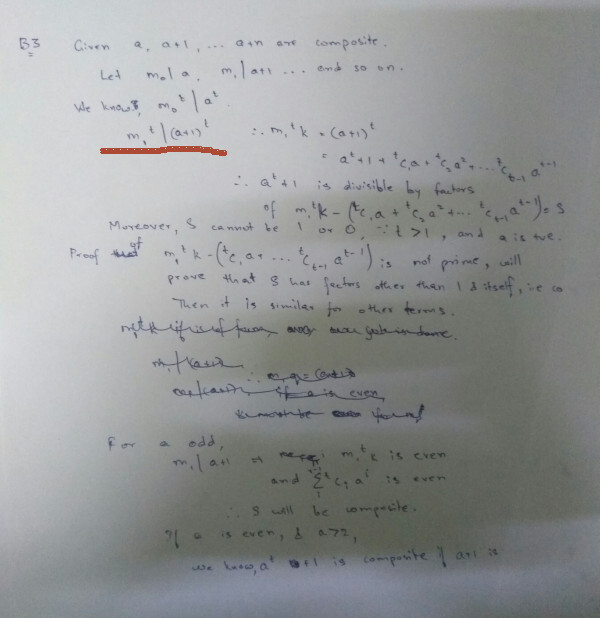 B3 Given a, a+1, ... a+n are composite.
Let m₀|a, m₁|a+1 ... and so on.
We know, m₀ᵗ | aᵗ.
m₁ᵗ | (a+1)ᵗ ∴ m₁ᵗk = (a+1)ᵗ
= aᵗ+1 + ᵗC₁a + ᵗC₂a² + ... ᵗCₜ₋₁aᵗ⁻¹
∴ aᵗ+1 is divisible by factors
of m₁ᵗk - (ᵗC₁a + ᵗC₂a² + ... ᵗCₜ₋₁aᵗ⁻¹) = S
Moreover, S cannot be 1 or 0, ∵ t>1, and a is +ve.
Proof of m₁ᵗk - (ᵗC₁a + ... ᵗCₜ₋₁aᵗ⁻¹) is not prime, will
prove that S has factors other than 1 & itself, i.e co
Then it is similar for other terms.
For a odd,
m₁|a+1 ⇒ m₁ᵗk is even
and Σ ᵗCᵢ aⁱ is even
∴ S will be composite.
If a is even, & a>2,
We know, aᵗ+1 is composite if a+1 is